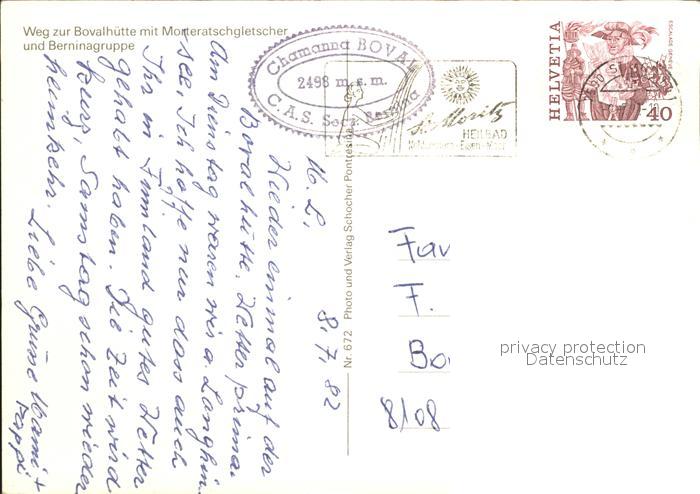 Weg zur Bovalhütte mit Morteratschgletscher
und Berninagruppe
Chamanna BOVAL
2498 m.s.m.
C.A.S. Sez. Bernina
St. Moritz
HEILBAD
HELVETIA
ESCALADE GENÈVE
40
8.7.82
Wieder einmal auf der
Bovalhütte. Wetter prima.
Am Dienstag waren wir a. Langhin
see. Ich hoffe nur dass auch
Ihr in Finnland gutes Wetter
gehabt haben. Die Zeit wird
kurz, Samstag schon wieder
heimkehr.
Liebe Grüsse Mami +
Pappi
Nr. 672 Photo und Verlag Schocher Pontresina
Fam
F.
Bo
8108
privacy protection
Datenschutz